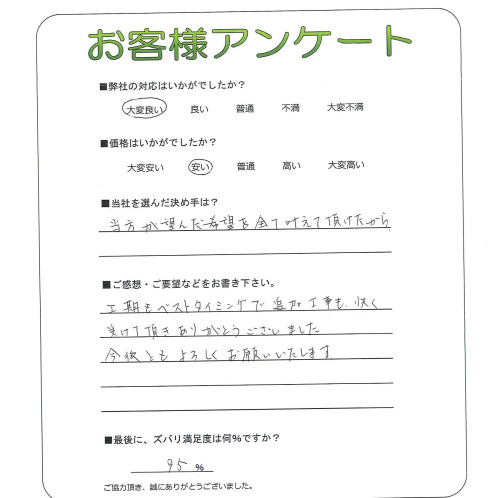 お客様アンケート
■弊社の対応はいかがでしたか?
大変良い 良い 普通 不満 大変不満
■価格はいかがでしたか?
大変安い 安い 普通 高い 大変高い
■当社を選んだ決め手は?
当方が望んだ希望を全て叶えて頂けたから
■ご感想・ご要望などをお書き下さい。
工期もベストタイミングで追加工事も、快く
受けて頂きありがとうございました
今後ともよろしくお願いいたします
■最後に、ズバリ満足度は何%ですか?
95 %
ご協力頂き、誠にありがとうございました。